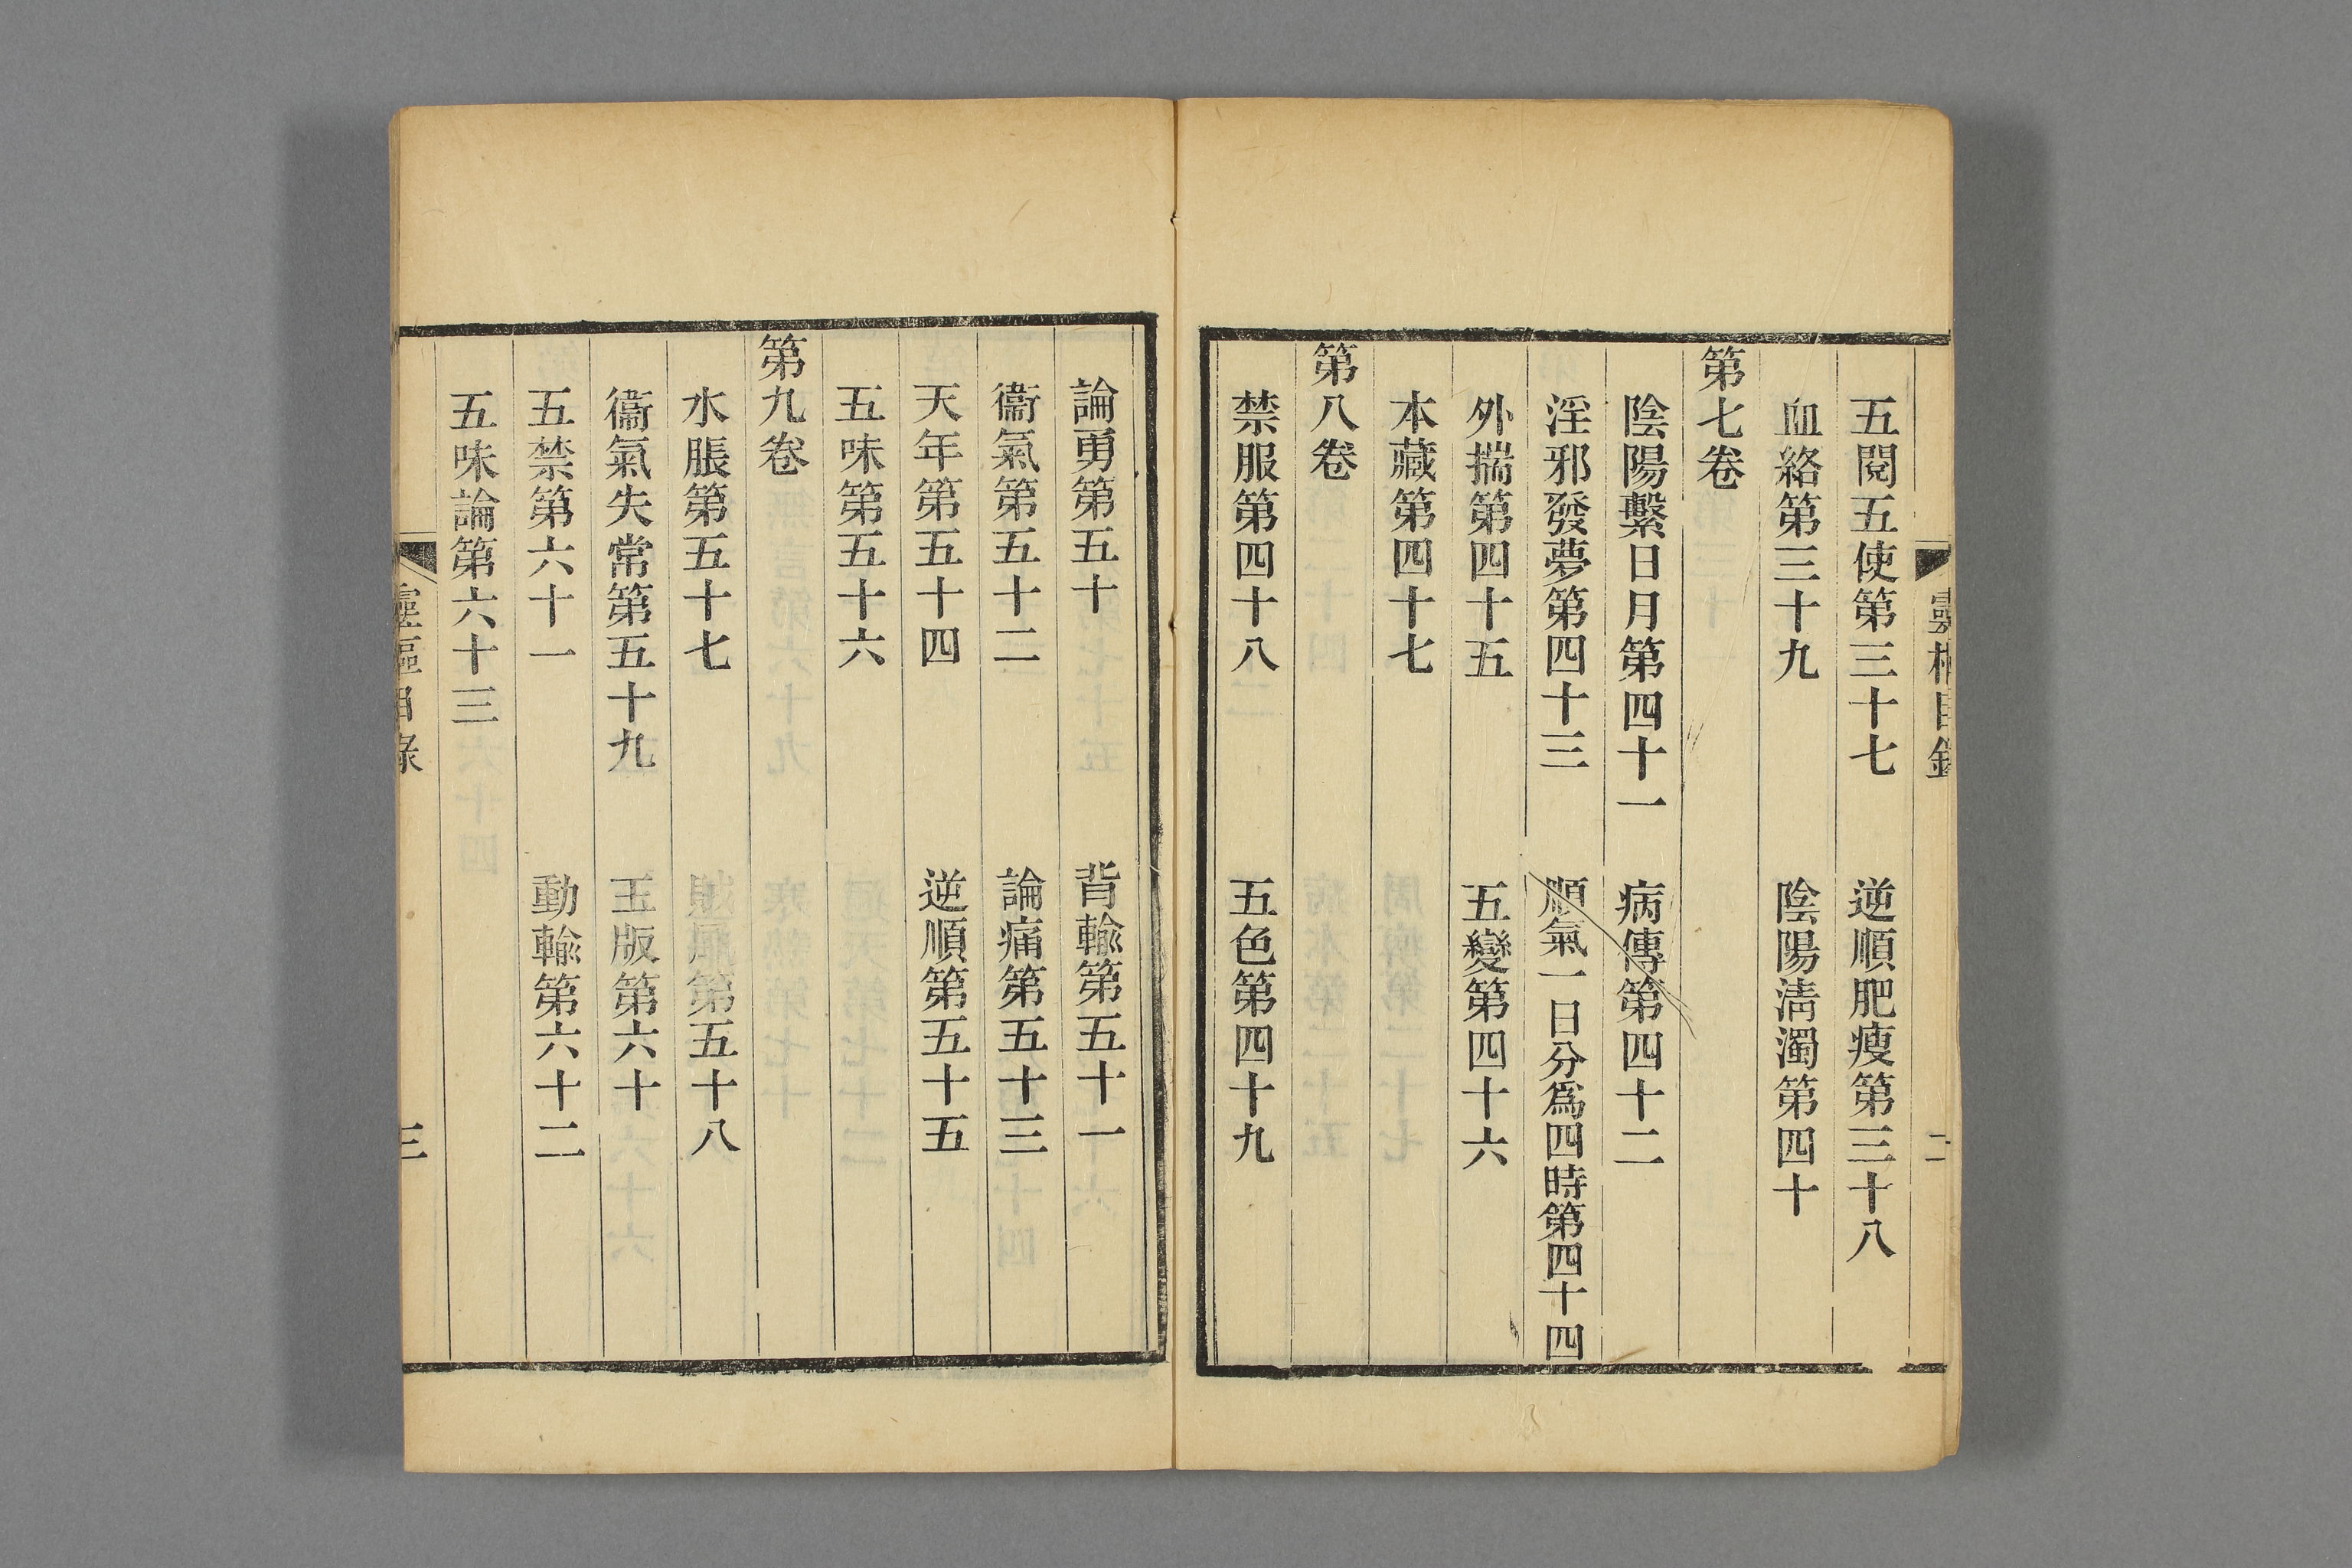 五閱五使第三十七　逆順肥瘦第三十八
血絡第三十九　陰陽淸濁第四十
第七卷
陰陽繫日月第四十一　病傳第四十二
淫邪發夢第四十三　順氣一日分爲四時第四十四
外揣第四十五　五變第四十六
本藏第四十七
第八卷
禁服第四十八　五色第四十九
論勇第五十　背輸第五十一
衞氣第五十二　論痛第五十三
天年第五十四　逆順第五十五
五味第五十六
第九卷
水脹第五十七　賊風第五十八
衞氣失常第五十九　玉版第六十
五禁第六十一　動輸第六十二
五味論第六十三
靈樞目錄
三